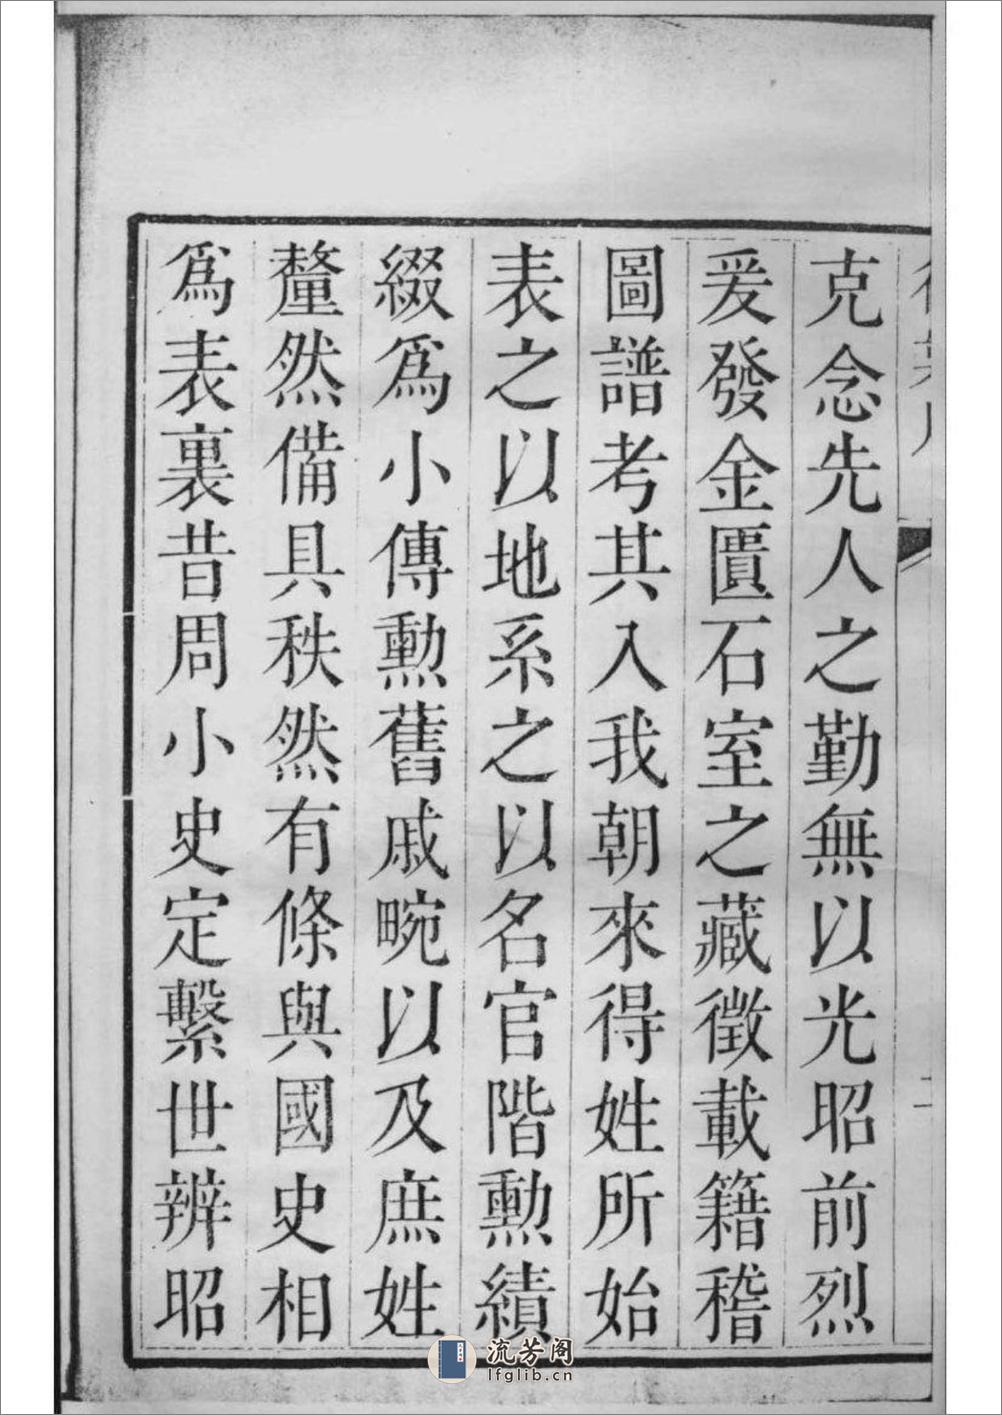 克念先人之勤無以光昭前烈
爰發金匱石室之藏徴載籍稽
圖譜考其入我朝來得姓所始
表之以地系之以名官階勲績
綴爲小傳勲舊戚畹以及庶姓
釐然備具秩然有條與國史相
爲表裏昔周小史定繫世辨昭
流芳阁
lfglib.cn